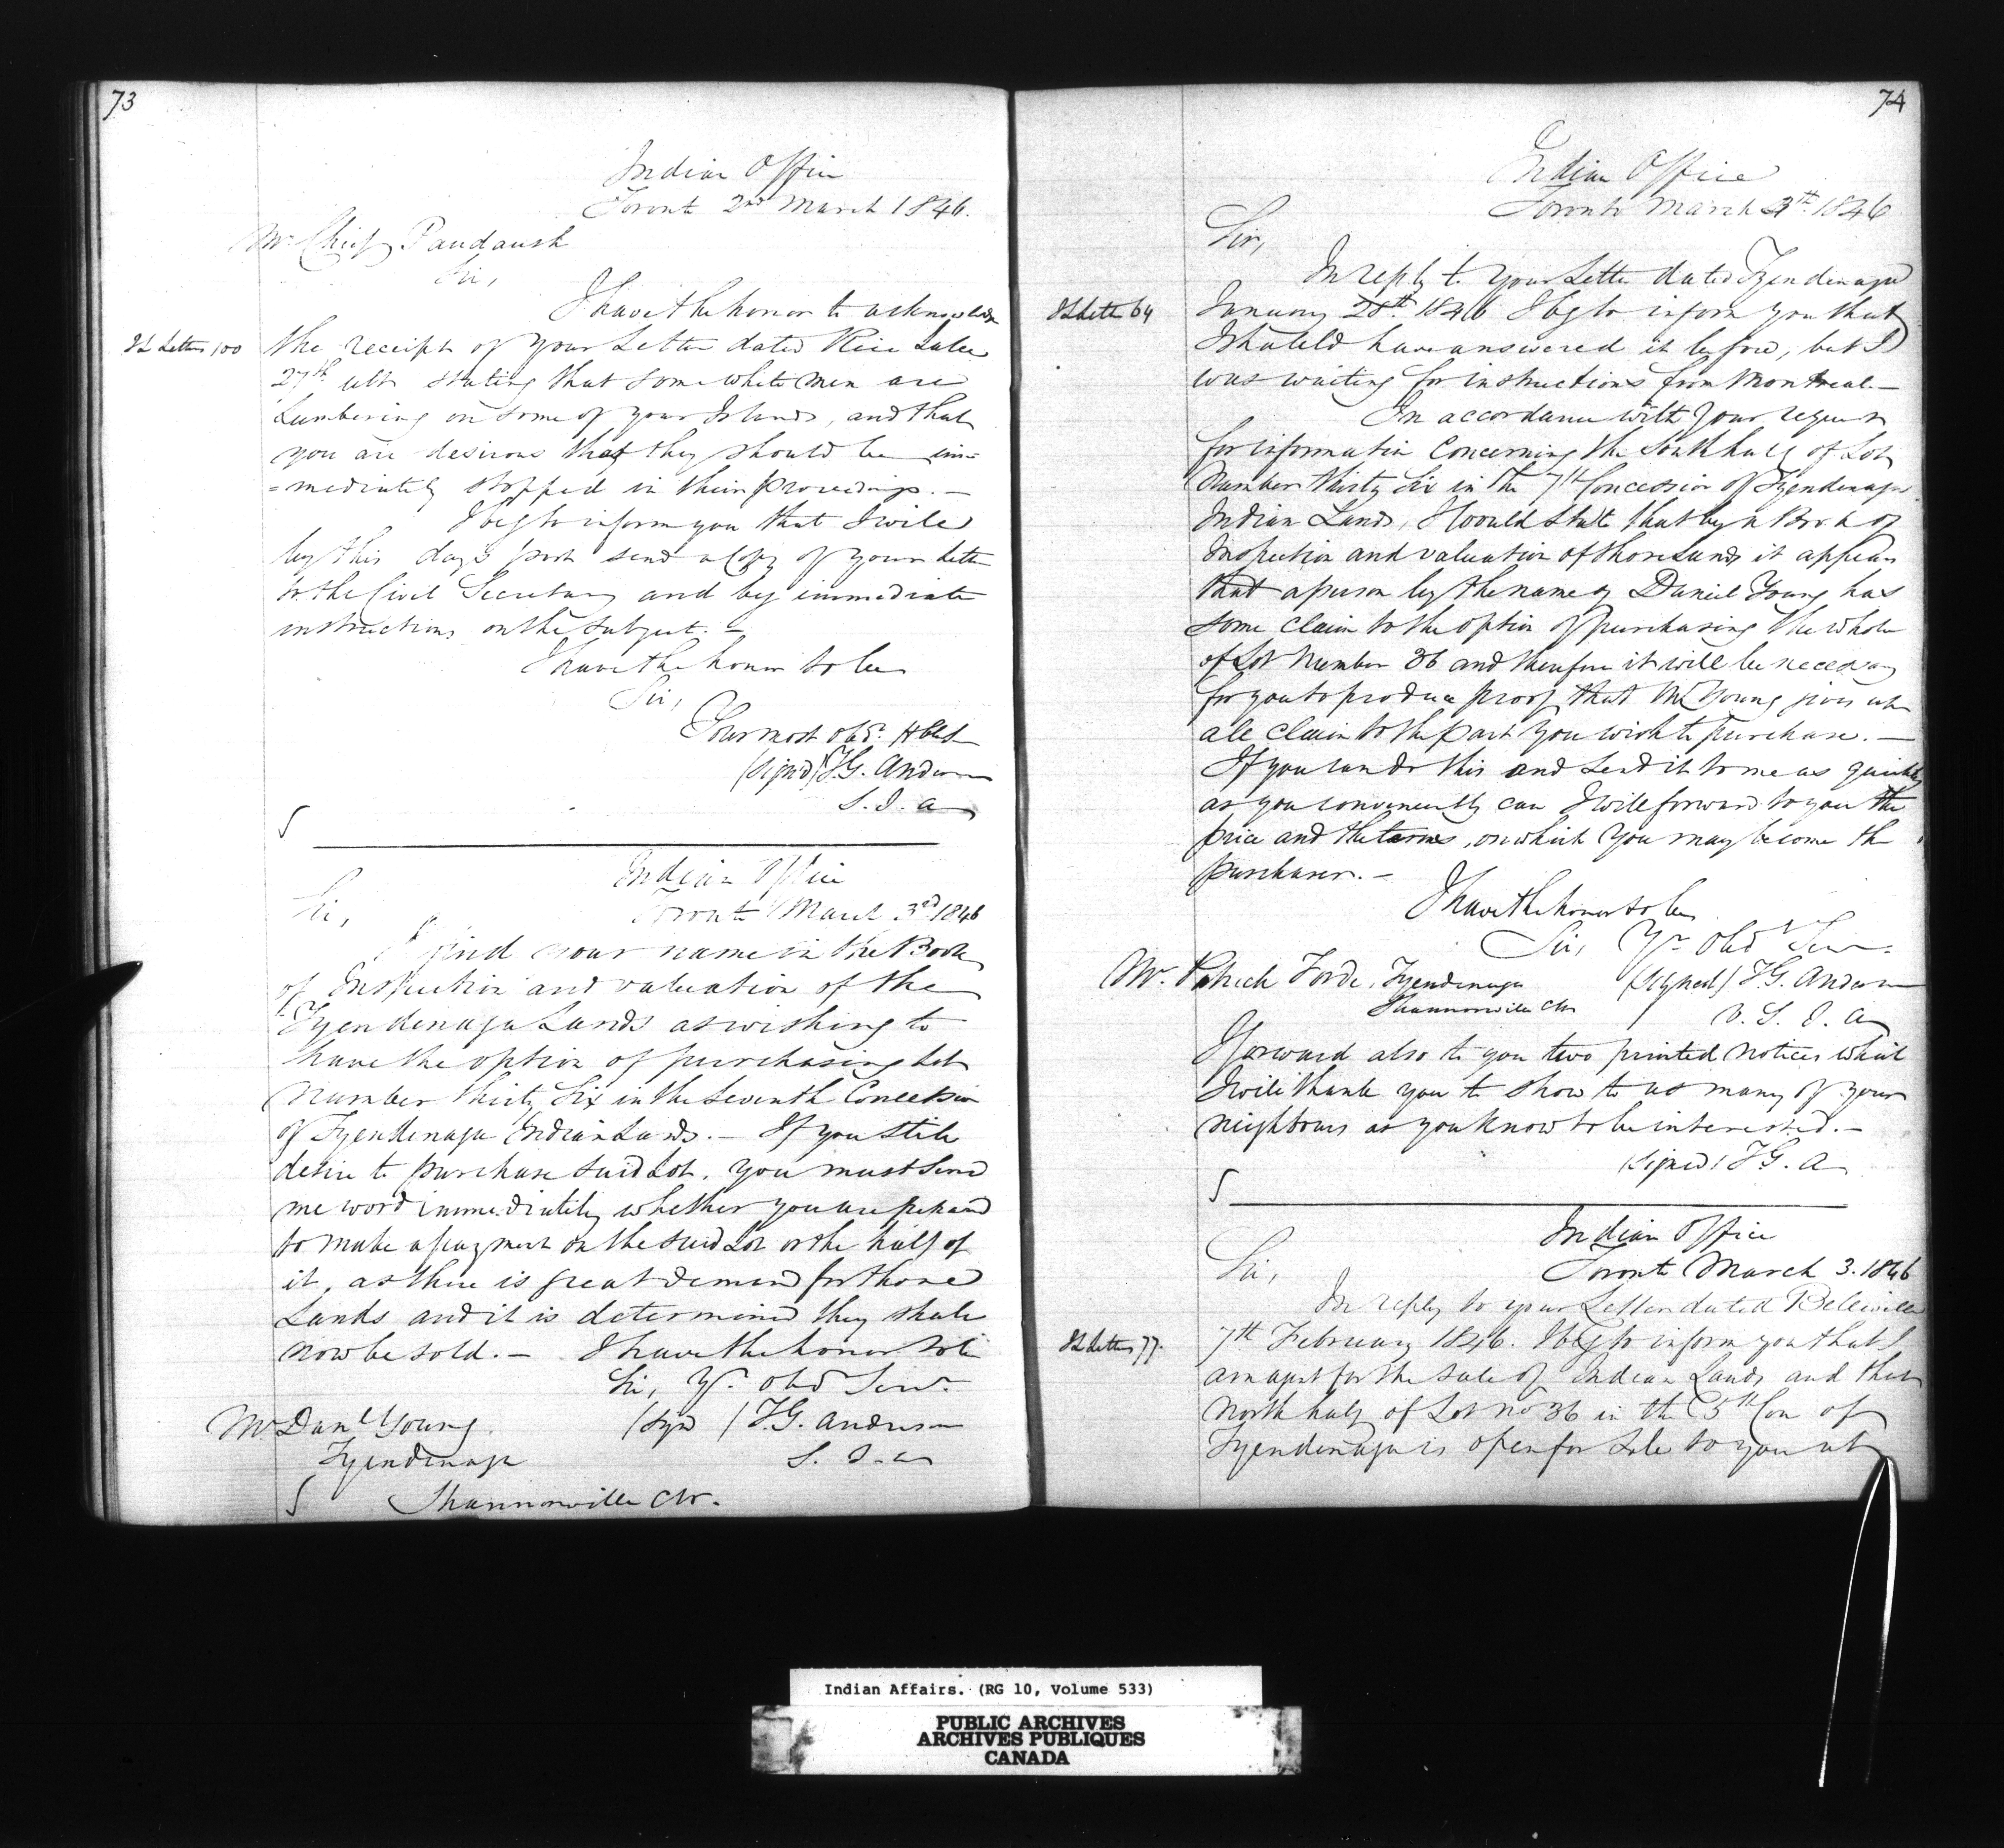 73
Indian Office
Toronto 2nd March 1846.
Mr Chief Paudaush
Sir,
I have the honor to acknowledge
I L Letters 100
the receipt of your Letter dated Rice Lake
27th ulto stating that some white men are
Lumbering on some of your Islands, and that
you are desirous that they should be im=
=mediately stopped in their proceedings. —
I beg to inform you that I will
by this days post send a Copy of your Letter
to the Civil Secretary and beg immediate
instructions on the subject. —
I have the honor to be
Sir,
Your most obdt Hble
(signed) T.G. Anderson
S. I. A
Indian Office
Toronto March 3rd 1846
Sir,
I find your name in the Book
of Inspection and valuation of the
Tyendenaga Lands as wishing to
have the option of purchasing Lot
Number thirty Six in the Seventh Concession
of Tyendenaga Indian Lands. — If you still
desire to purchase said Lot, you must send
me word immediately whether you are prepared
to make a payment on the said Lot or the half of
it, as there is great demand for those
Lands and it is determined they shall
now be sold. — I have the honor to be
Sir, Yr. Obd Servt
Mr Danl Young (Sigd) T.G. Anderson
Tyendenaga S. I. A
Shannonville CW.
74
Indian Office
Toronto March 4th 1846
Sir,
In reply to your Letter dated Tyendenaga
I L Lette 64
January 28th 1846 I beg to inform you that
I should have answered it before, but I
was waiting for instructions from Montreal —
In accordance with your request
for information Concerning the South half of Lot
Number thirty Six in the 7th Concession of Tyendenaga
Indian Lands, I would State that by a Book of
Inspection and valuation of those Lands it appears
that a person by the name of Daniel Young has
some claim to the option of purchasing the whole
of Lot Number 36 and therefore it will be necessary
for you to produce proof that Mr Young gives up
all claim to the part you wish to purchase. —
If you can do this and send it to me as quickly
as you conveniently can I will forward to you the
price and the terms, on which you may become the
purchaser. —
I have the honor to be
Sir, Yr Obd Servt
Mr. Patrick Forde, Tyendenaga (Signed) T.G. Anderson
Shannonville CW
V. S. I. A
I forward also to you two printed notices which
I will thank you to show to as many of your
neighbours as you know to be interested. —
(signed) T G. A
Indian Office
Toronto March 3. 1846
Sir,
In reply to your Letter dated Belleville
I L Letters 77.
7th February 1846. I beg to inform you that I
am agent for the sale of Indian Lands and that
North half of Lot no 36 in the 5th Con of
Tyendenaga is open for Sale to you at
Indian Affairs. (RG 10, Volume 533)
PUBLIC ARCHIVES
ARCHIVES PUBLIQUES
CANADA